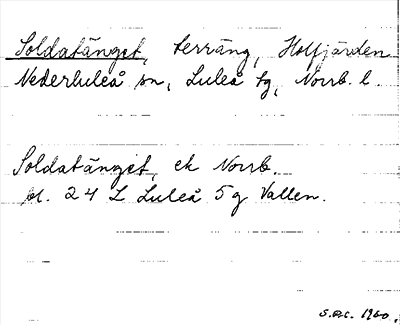 Soldatänget, terräng, Holfjärden
Nederluleå sn, Luleå tg, Norrb. l.
Soldatänget, ek Norrb.
bl. 24 L Luleå 5 g Vallen.
S.O.C. 1960.